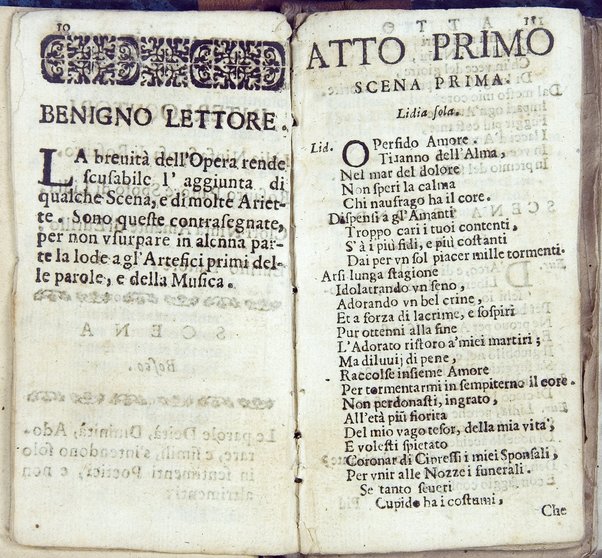 10
BENIGNO LETTORE.
LA breuità dell'Opera rende
scusabile l' aggiunta di
qualche Scena, e di molte Ariet-
te. Sono queste contrasegnate,
per non vsurpare in alcnna par-
te la lode a gl'Artefici primi del-
le parole, e della Musica.
SCENA
Bosco.
Le parole Deità, Diuinità, Ado-
rare, e simili, s'intendono solo
in sentimenti Poetici, e non
altrimenti.
11
ATTO PRIMO
SCENA PRIMA.
Lidia sola.
Lid. O Perfido Amore.
Tiranno dell'Alma,
Nel mar del dolore
Non speri la calma
Chi naufrago ha il core.
Dispensi a gl'Amanti
Troppo cari i tuoi contenti,
S'à i più fidi, e più costanti
Dai per vn sol piacer mille tormenti.
Arsi lunga stagione
Idolatrando vn seno,
Adorando vn bel crine,
Et a forza di lacrime, e sospiri
Pur ottenni alla fine
L'Adorato ristoro a'miei martiri;
Ma diluuij di pene,
Raccolse insieme Amore
Per tormentarmi in sempiterno il core.
Non perdonasti, ingrato,
All'età più fiorita
Del mio vago tesor, della mia vita,
E volesti spietato
Coronar di Cipressi i miei Sponsali,
Per vnir alle Nozze i funerali.
Se tanto seueri
Cupido ha i costumi,
Che